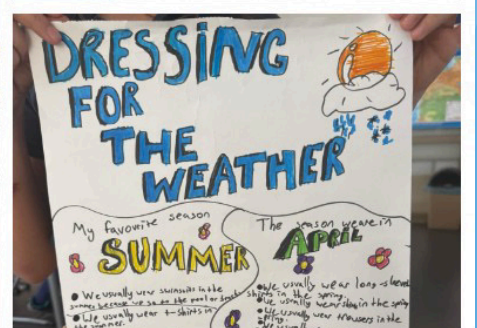 DRESSING
FOR
THE
WEATHER
My favorite season
SUMMER
• We usually wear swimsuits in the
summer because we go to the pool or beach
• We usually wear t-shirts in
the summer.
The season we are in
APRIL
• We usually wear long-sleeved
shirts in the spring.
• We usually wear in the spring
• We usually wear trousers in the
spring.
• We usually